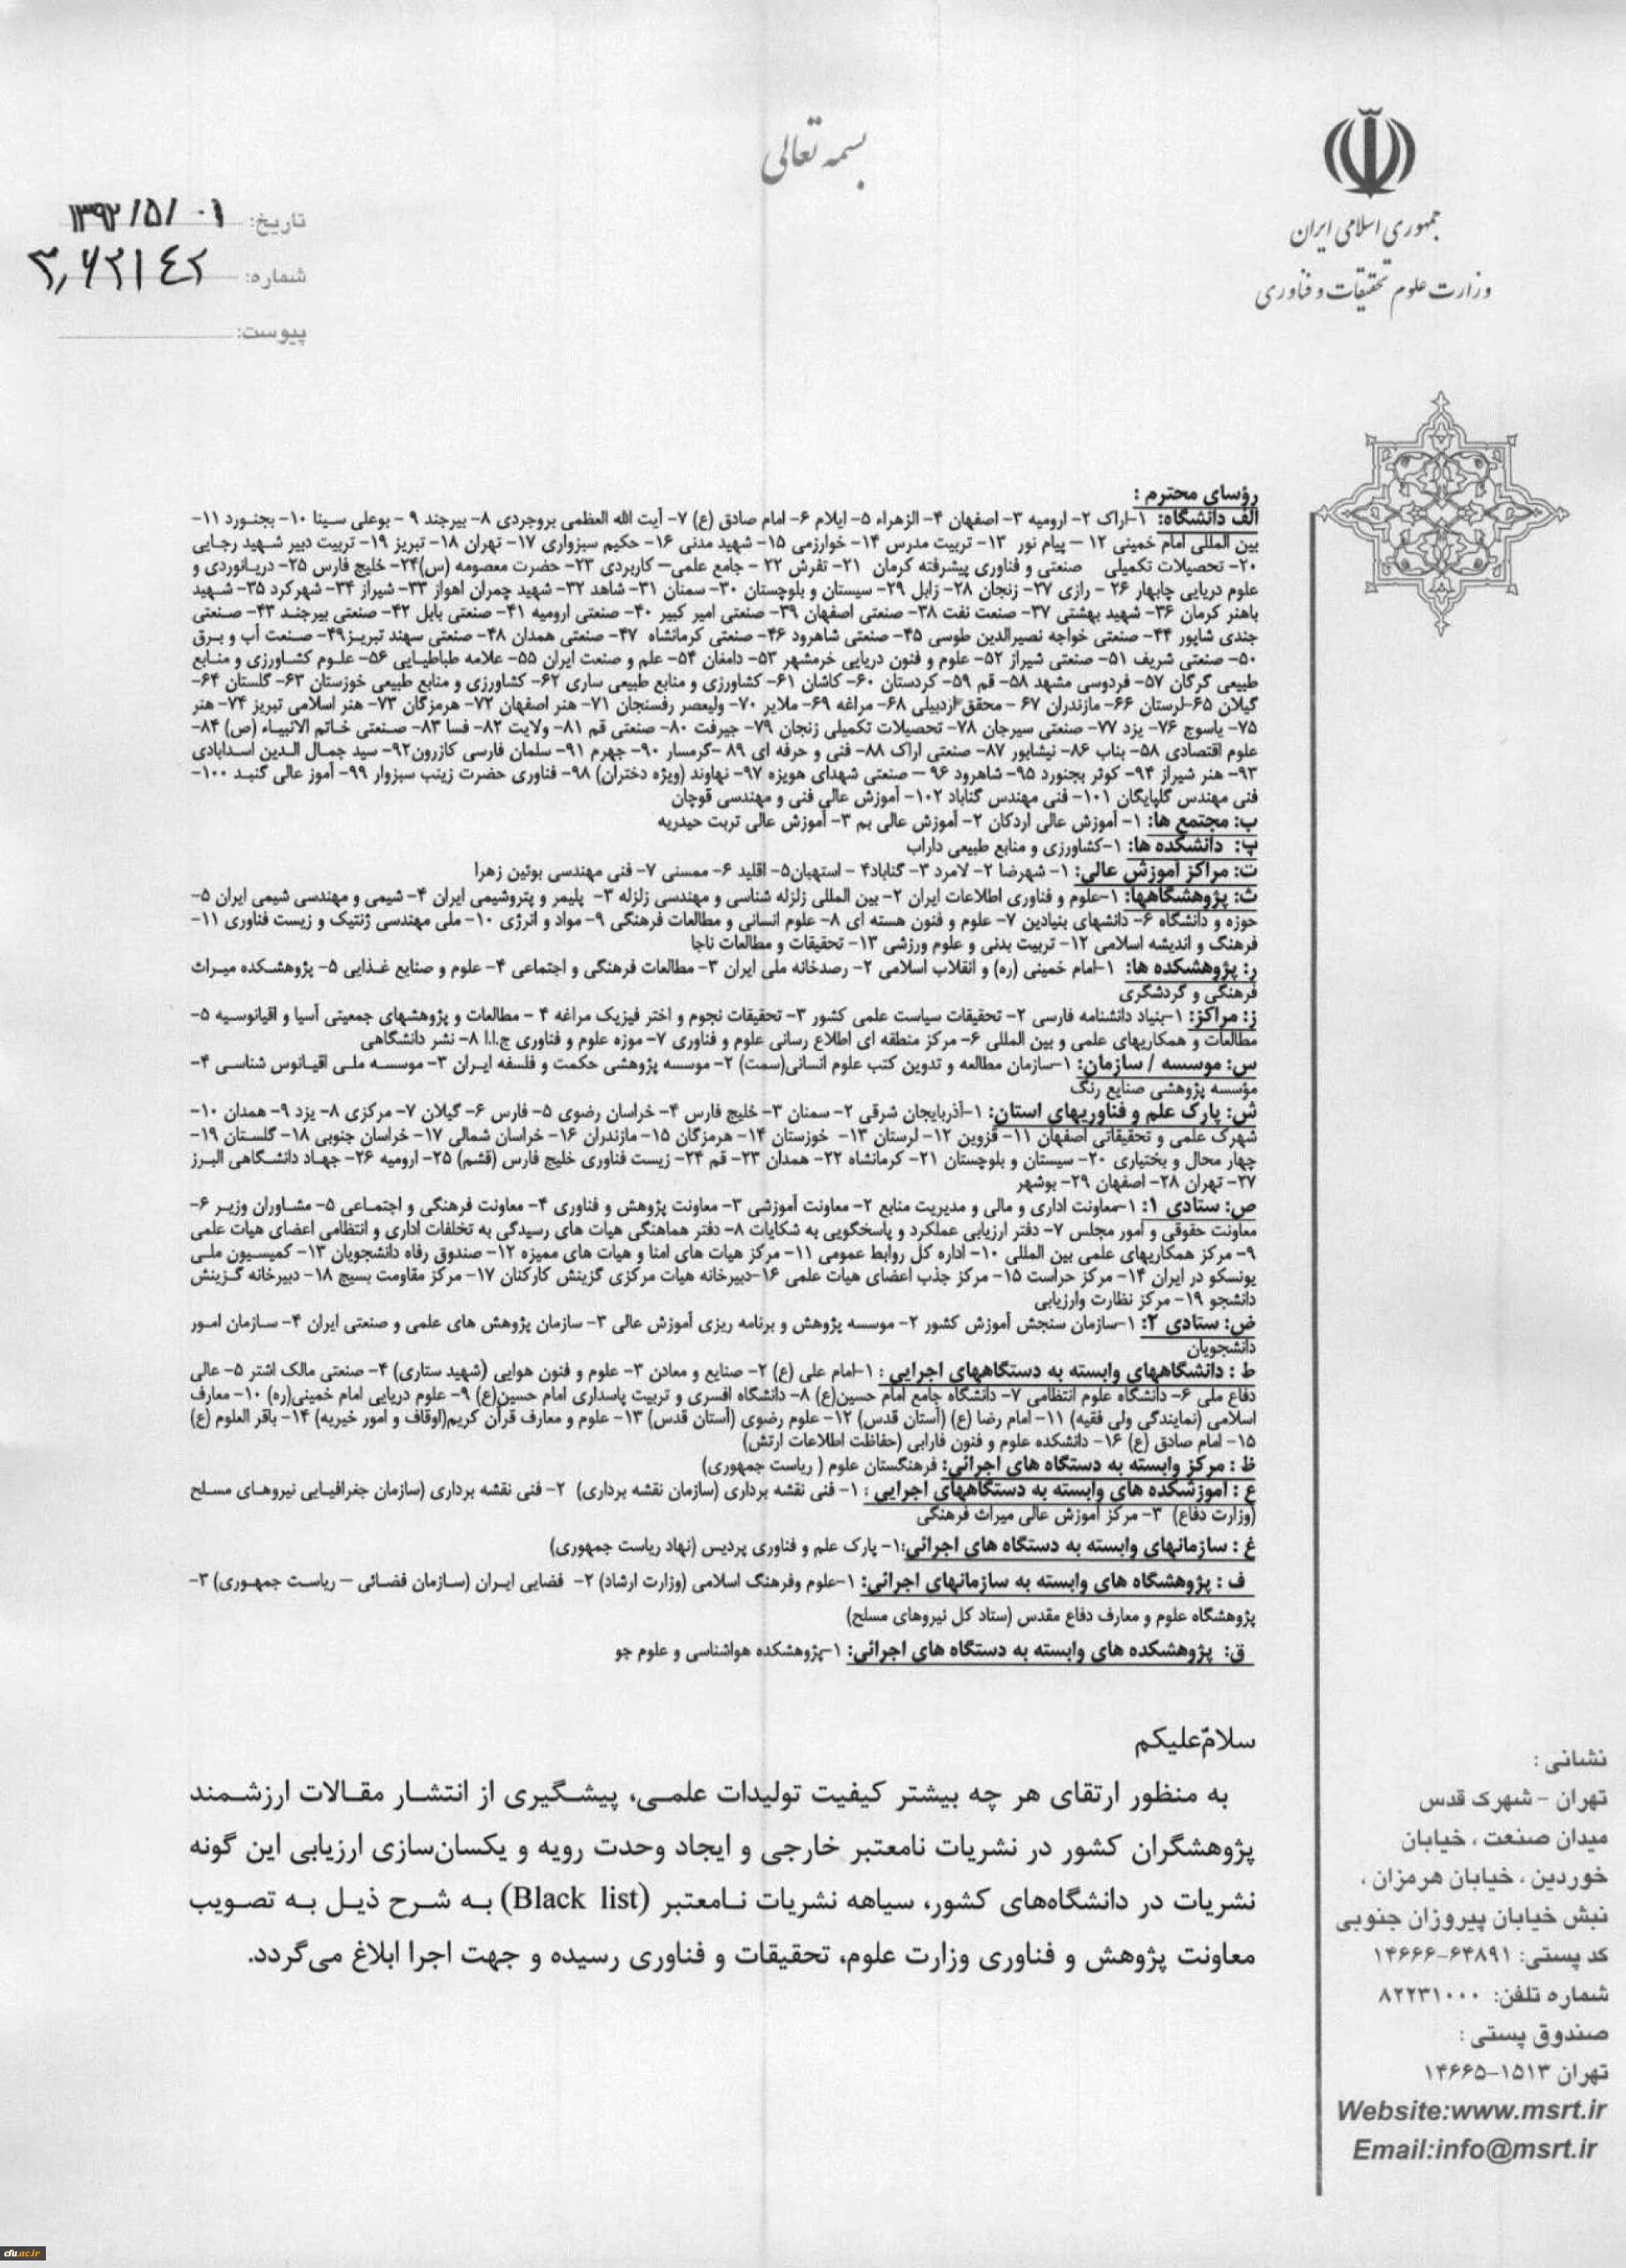 بسمه تعالی
جمهوری اسلامی ایران
وزارت علوم تحقیقات و فناوری
تاریخ: ۱۳۹۲/۵/۰۱
شماره: ۳,۶۲۱۴۲
پیوست:
رؤسای محترم :
الف دانشگاه: ۱-اراک ۲- ارومیه ۳- اصفهان ۴- الزهراء ۵- ایلام ۶- امام صادق (ع) ۷- آیت الله العظمی بروجردی ۸- بیرجند ۹ - بوعلی سینا ۱۰- بجنورد ۱۱-
بین المللی امام خمینی ۱۲ – پیام نور ۱۳- تربیت مدرس ۱۴- خوارزمی ۱۵- شهید مدنی ۱۶- حکیم سبزواری ۱۷- تهران ۱۸- تبریز ۱۹- تربیت دبیر شهید رجایی
۲۰- تحصیلات تکمیلی صنعتی و فناوری پیشرفته کرمان ۲۱- تفرش ۲۲ - جامع علمی– کاربردی ۲۳- حضرت معصومه (س)۲۴- خلیج فارس ۲۵- دریانوردی و
علوم دریایی چابهار ۲۶ - رازی ۲۷- زنجان ۲۸- زابل ۲۹- سیستان و بلوچستان ۳۰- سمنان ۳۱- شاهد ۳۲- شهید چمران اهواز ۳۳- شیراز ۳۴- شهرکرد ۳۵- شهید
باهنر کرمان ۳۶- شهید بهشتی ۳۷- صنعت نفت ۳۸- صنعتی اصفهان ۳۹- صنعتی امیر کبیر ۴۰- صنعتی ارومیه ۴۱- صنعتی بابل ۴۲- صنعتی بیرجند ۴۳- صنعتی
جندی شاپور ۴۴- صنعتی خواجه نصیرالدین طوسی ۴۵- صنعتی شاهرود ۴۶- صنعتی کرمانشاه ۴۷- صنعتی همدان ۴۸- صنعتی سهند تبریز۴۹- صنعت آب و برق
۵۰- صنعتی شریف ۵۱- صنعتی شیراز ۵۲- علوم و فنون دریایی خرمشهر ۵۳- دامغان ۵۴- علم و صنعت ایران ۵۵- علامه طباطبایی ۵۶- علوم کشاورزی و منابع
طبیعی گرگان ۵۷- فردوسی مشهد ۵۸- قم ۵۹- کردستان ۶۰- کاشان ۶۱- کشاورزی و منابع طبیعی ساری ۶۲- کشاورزی و منابع طبیعی خوزستان ۶۳- گلستان ۶۴-
گیلان ۶۵-لرستان ۶۶- مازندران ۶۷ - محقق اردبیلی ۶۸- مراغه ۶۹- ملایر ۷۰- ولیعصر رفسنجان ۷۱- هنر اصفهان ۷۲- هرمزگان ۷۳- هنر اسلامی تبریز ۷۴- هنر
۷۵- یاسوج ۷۶- یزد ۷۷- صنعتی سیرجان ۷۸- تحصیلات تکمیلی زنجان ۷۹- جیرفت ۸۰- صنعتی قم ۸۱- ولایت ۸۲- فسا ۸۳- صنعتی خاتم الانبیاء (ص) ۸۴-
علوم اقتصادی ۵۸- بناب ۸۶- نیشابور ۸۷- صنعتی اراک ۸۸- فنی و حرفه ای ۸۹ -گرمسار ۹۰- جهرم ۹۱- سلمان فارسی کازرون۹۲- سید جمال الدین اسدابادی
۹۳- هنر شیراز ۹۴- کوثر بجنورد ۹۵- شاهرود ۹۶ – صنعتی شهدای هویزه ۹۷- نهاوند (ویژه دختران) ۹۸- فناوری حضرت زینب سبزوار ۹۹- آموز عالی گنبد ۱۰۰-
فنی مهندس گلپایگان ۱۰۱- فنی مهندس گناباد ۱۰۲- آموزش عالی فنی و مهندسی قوچان
ب: مجتمع ها: ۱- آموزش عالی اردکان ۲- آموزش عالی بم ۳- آموزش عالی تربت حیدریه
پ: دانشکده ها: ۱-کشاورزی و منابع طبیعی داراب
ت: مراکز آموزش عالی: ۱- شهرضا ۲- لامرد ۳- گناباد۴ - استهبان۵- اقلید ۶- ممسنی ۷- فنی مهندسی بوئین زهرا
ث: پژوهشگاهها: ۱-علوم و فناوری اطلاعات ایران ۲- بین المللی زلزله شناسی و مهندسی زلزله ۳- پلیمر و پتروشیمی ایران ۴- شیمی و مهندسی شیمی ایران ۵-
حوزه و دانشگاه ۶- دانشهای بنیادین ۷- علوم و فنون هسته ای ۸- علوم انسانی و مطالعات فرهنگی ۹- مواد و انرژی ۱۰- ملی مهندسی ژنتیک و زیست فناوری ۱۱-
فرهنگ و اندیشه اسلامی ۱۲- تربیت بدنی و علوم ورزشی ۱۳- تحقیقات و مطالعات ناجا
ر: پژوهشکده ها: ۱-امام خمینی (ره) و انقلاب اسلامی ۲- رصدخانه ملی ایران ۳- مطالعات فرهنگی و اجتماعی ۴- علوم و صنایع غذایی ۵- پژوهشکده میراث
فرهنگی و گردشگری
ز: مراکز: ۱-بنیاد دانشنامه فارسی ۲- تحقیقات سیاست علمی کشور ۳- تحقیقات نجوم و اختر فیزیک مراغه ۴ - مطالعات و پژوهشهای جمعیتی آسیا و اقیانوسیه ۵-
مطالعات و همکاریهای علمی و بین المللی ۶- مرکز منطقه ای اطلاع رسانی علوم و فناوری ۷- موزه علوم و فناوری ج.ا.ا ۸- نشر دانشگاهی
س: موسسه / سازمان: ۱-سازمان مطالعه و تدوین کتب علوم انسانی(سمت) ۲- موسسه پژوهشی حکمت و فلسفه ایران ۳- موسسه ملی اقیانوس شناسی ۴-
مؤسسه پژوهشی صنایع رنگ
ش: پارک علم و فناوریهای استان: ۱-آذربایجان شرقی ۲- سمنان ۳- خلیج فارس ۴- خراسان رضوی ۵- فارس ۶- گیلان ۷- مرکزی ۸- یزد ۹- همدان ۱۰-
شهرک علمی و تحقیقاتی اصفهان ۱۱- قزوین ۱۲- لرستان ۱۳- خوزستان ۱۴- هرمزگان ۱۵- مازندران ۱۶- خراسان شمالی ۱۷- خراسان جنوبی ۱۸- گلستان ۱۹-
چهار محال و بختیاری ۲۰- سیستان و بلوچستان ۲۱- کرمانشاه ۲۲- همدان ۲۳- قم ۲۴- زیست فناوری خلیج فارس (قشم) ۲۵- ارومیه ۲۶- جهاد دانشگاهی البرز
۲۷- تهران ۲۸- اصفهان ۲۹- بوشهر
ص: ستادی ۱: ۱-معاونت اداری و مالی و مدیریت منابع ۲- معاونت آموزشی ۳- معاونت پژوهش و فناوری ۴- معاونت فرهنگی و اجتماعی ۵- مشاوران وزیر ۶-
معاونت حقوقی و امور مجلس ۷- دفتر ارزیابی عملکرد و پاسخگویی به شکایات ۸- دفتر هماهنگی هیات های رسیدگی به تخلفات اداری و انتظامی اعضای هیات علمی
۹- مرکز همکاریهای علمی بین المللی ۱۰- اداره کل روابط عمومی ۱۱- مرکز هیات های امنا و هیات های ممیزه ۱۲- صندوق رفاه دانشجویان ۱۳- کمیسیون ملی
یونسکو در ایران ۱۴- مرکز حراست ۱۵- مرکز جذب اعضای هیات علمی ۱۶-دبیرخانه هیات مرکزی گزینش کارکنان ۱۷- مرکز مقاومت بسیج ۱۸- دبیرخانه گزینش
دانشجو ۱۹- مرکز نظارت وارزیابی
ض: ستادی ۲: ۱-سازمان سنجش آموزش کشور ۲- موسسه پژوهش و برنامه ریزی آموزش عالی ۳- سازمان پژوهش های علمی و صنعتی ایران ۴- سازمان امور
دانشجویان
ط : دانشگاههای وابسته به دستگاههای اجرایی : ۱-امام علی (ع) ۲- صنایع و معادن ۳- علوم و فنون هوایی (شهید ستاری) ۴- صنعتی مالک اشتر ۵- عالی
دفاع ملی ۶- دانشگاه علوم انتظامی ۷- دانشگاه جامع امام حسین(ع) ۸- دانشگاه افسری و تربیت پاسداری امام حسین(ع) ۹- علوم دریایی امام خمینی(ره) ۱۰- معارف
اسلامی (نمایندگی ولی فقیه) ۱۱- امام رضا (ع) (آستان قدس) ۱۲- علوم رضوی (آستان قدس) ۱۳- علوم و معارف قرآن کریم(اوقاف و امور خیریه) ۱۴- باقر العلوم (ع)
۱۵- امام صادق (ع) ۱۶- دانشکده علوم و فنون فارابی (حفاظت اطلاعات ارتش)
ظ : مرکز وابسته به دستگاه های اجرائی: فرهنگستان علوم ( ریاست جمهوری)
ع : آموزشکده های وابسته به دستگاههای اجرایی : ۱- فنی نقشه برداری (سازمان نقشه برداری) ۲- فنی نقشه برداری (سازمان جغرافیایی نیروهای مسلح
(وزارت دفاع) ۳- مرکز آموزش عالی میراث فرهنگی
غ : سازمانهای وابسته به دستگاه های اجرائی:۱- پارک علم و فناوری پردیس (نهاد ریاست جمهوری)
ف : پژوهشگاه های وابسته به سازمانهای اجرائی: ۱-علوم وفرهنگ اسلامی (وزارت ارشاد) ۲- فضایی ایران (سازمان فضائی – ریاست جمهوری) ۳-
پژوهشگاه علوم و معارف دفاع مقدس (ستاد کل نیروهای مسلح)
ق: پژوهشکده های وابسته به دستگاه های اجرائی: ۱-پژوهشکده هواشناسی و علوم جو
سلامٌ‌علیکم
به منظور ارتقای هر چه بیشتر کیفیت تولیدات علمی، پیشگیری از انتشار مقالات ارزشمند
پژوهشگران کشور در نشریات نامعتبر خارجی و ایجاد وحدت رویه و یکسان‌سازی ارزیابی این گونه
نشریات در دانشگاه‌های کشور، سیاهه نشریات نامعتبر (Black list) به شرح ذیل به تصویب
معاونت پژوهش و فناوری وزارت علوم، تحقیقات و فناوری رسیده و جهت اجرا ابلاغ می‌گردد.
نشانی :
تهران - شهرک قدس
میدان صنعت ، خیابان
خوردین ، خیابان هرمزان ،
نبش خیابان پیروزان جنوبی
کد پستی: ۱۴۶۶۶-۶۴۸۹۱
شماره تلفن: ۸۲۲۳۱۰۰۰
صندوق پستی :
تهران ۱۵۱۳-۱۴۶۶۵
Website:www.msrt.ir
Email:info@msrt.ir
cfu.ac.ir